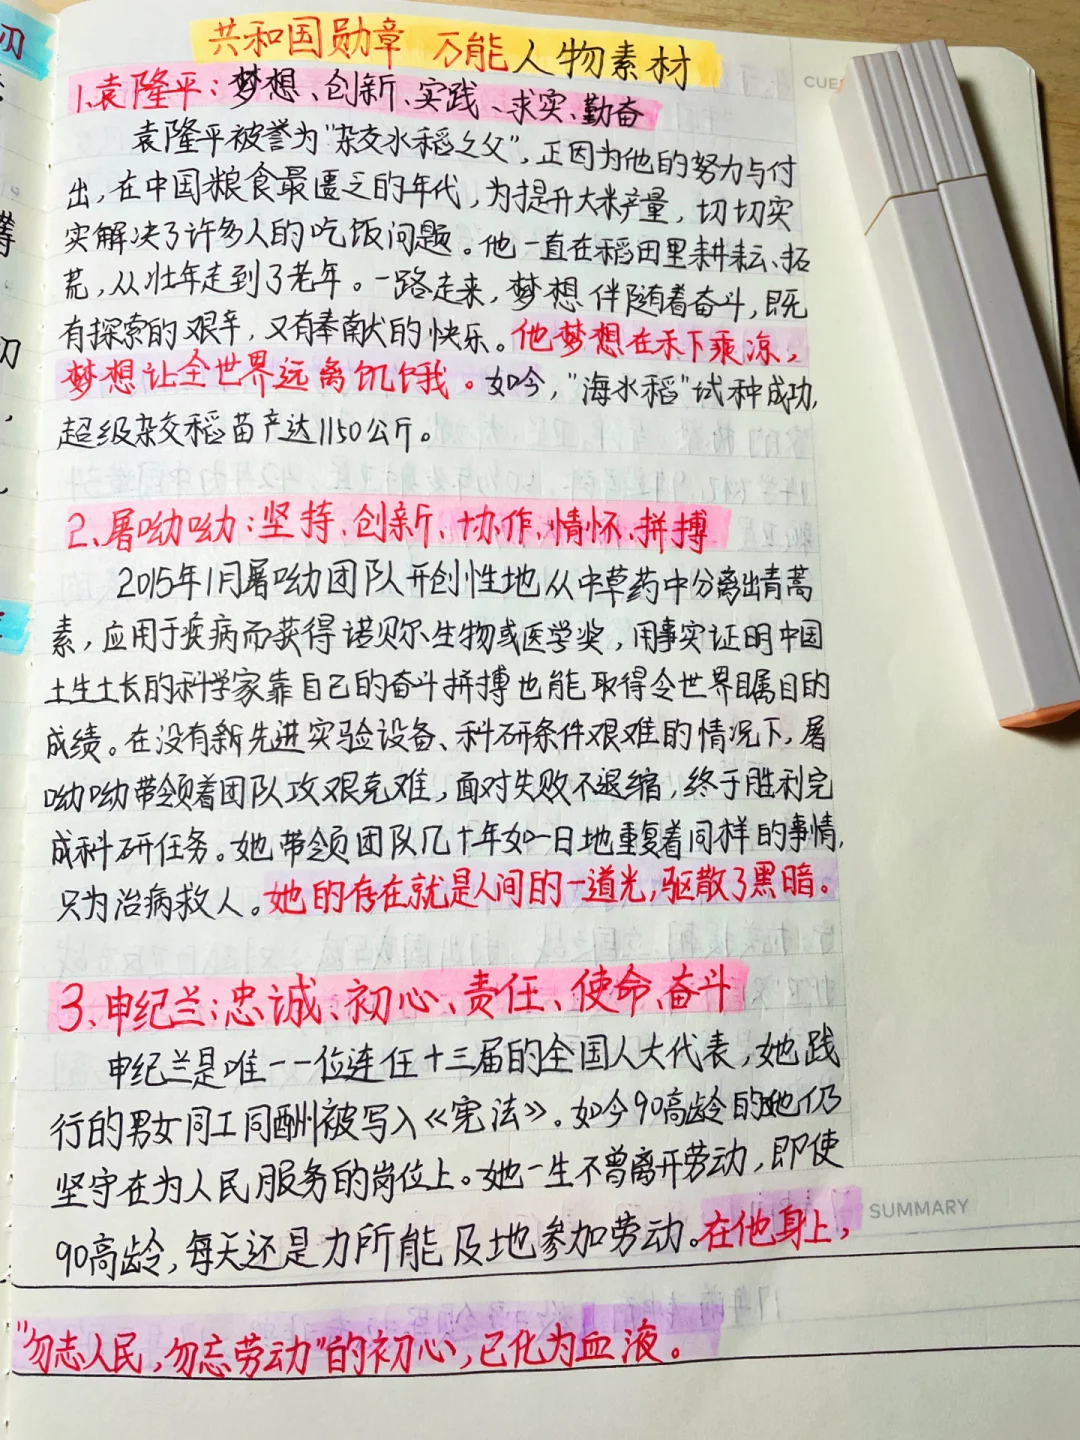 共和国勋章 万能人物素材
CUE
1、袁隆平：梦想、创新、实践、求实、勤奋
袁隆平被誉为"杂交水稻之父"，正因为他的努力与付
出，在中国粮食最匮乏的年代，为提升大米产量，切切实
实解决了许多人的吃饭问题。他一直在稻田里耕耘、拓
荒，从壮年走到了老年。一路走来，梦想伴随着奋斗，既
有探索的艰辛，又有奉献的快乐。他梦想在禾下乘凉，
梦想让全世界远离饥饿。如今，"海水稻"试种成功，
超级杂交稻亩产达1150公斤。
2、屠呦呦：坚持、创新、协作、情怀、拼搏
2015年1月屠呦团队开创性地从中草药中分离出青蒿
素，应用于疾病而获得诺贝尔生物或医学奖，用事实证明中国
土生土长的科学家靠自己的奋斗拼搏也能取得令世界瞩目的
成绩。在没有新先进实验设备、科研条件艰难的情况下，屠
呦呦带领着团队攻艰克难，面对失败不退缩，终于胜利完
成科研任务。她带领团队几十年如一日地重复着同样的事情，
只为治病救人。她的存在就是人间的一道光，驱散了黑暗。
3、申纪兰：忠诚、初心、责任、使命、奋斗
申纪兰是唯一一位连任十三届的全国人大代表，她践
行的男女同工同酬被写入《宪法》。如今90高龄的她仍
坚守在为人民服务的岗位上。她一生不曾离开劳动，即使
90高龄，每天还是力所能及地参加劳动。在他身上，
SUMMARY
"勿忘人民，勿忘劳动"的初心，已化为血液。